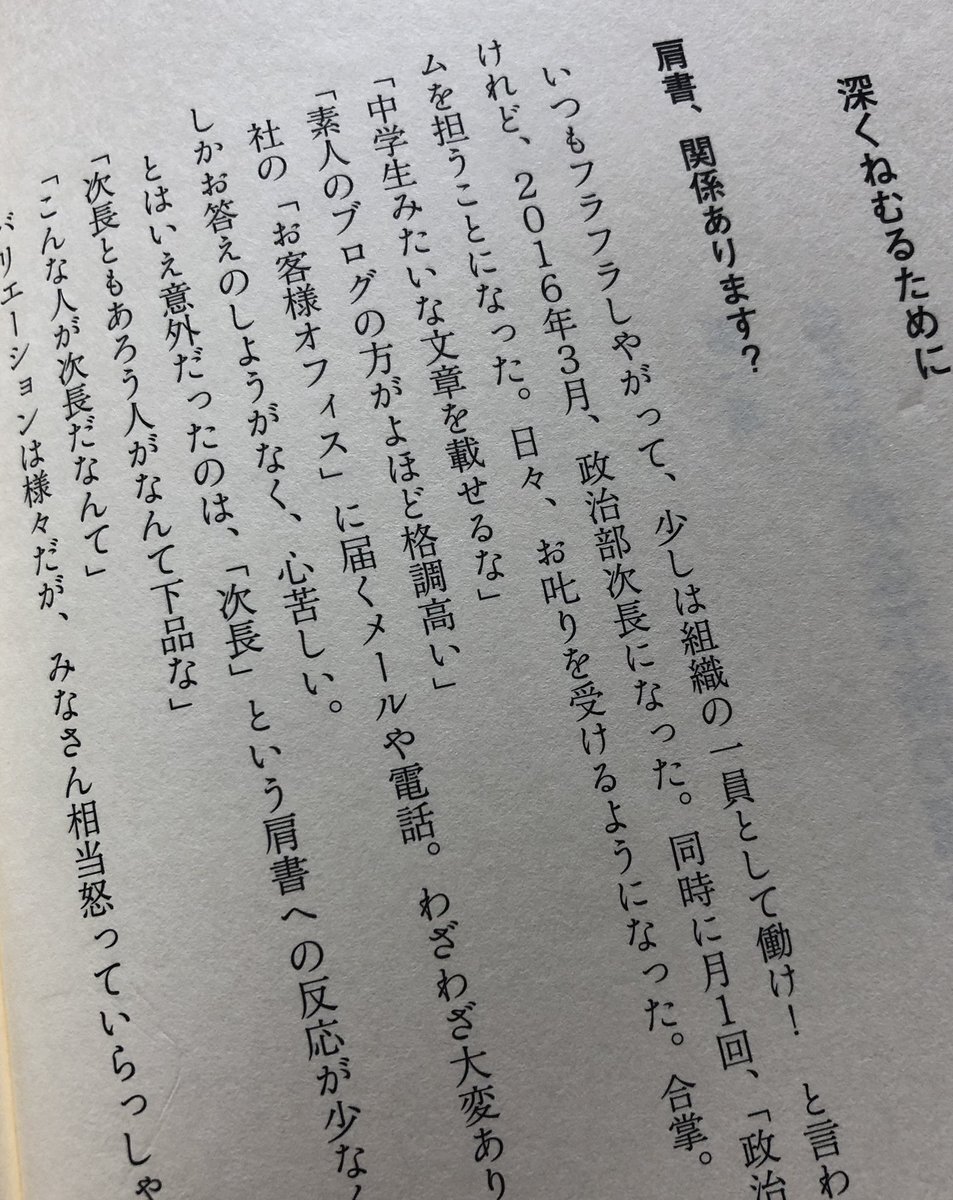 深くねむるために
肩書、関係あります?
いつもフラフラしやがって、少しは組織の一員として働け! と言わ
けれど、2016年3月、政治部次長になった。同時に月1回、「政治
ムを担うことになった。日々、お叱りを受けるようになった。合掌。
「中学生みたいな文章を載せるな」
「素人のブログの方がよほど格調高い」
社の「お客様オフィス」に届くメールや電話。わざわざ大変あり
しかお答えのしようがなく、心苦しい。
とはいえ意外だったのは、「次長」という肩書への反応が少なく
「次長ともあろう人がなんて下品な」
「こんな人が次長だなんて」
バリエーションは様々だが、みなさん相当怒っていらっしゃ